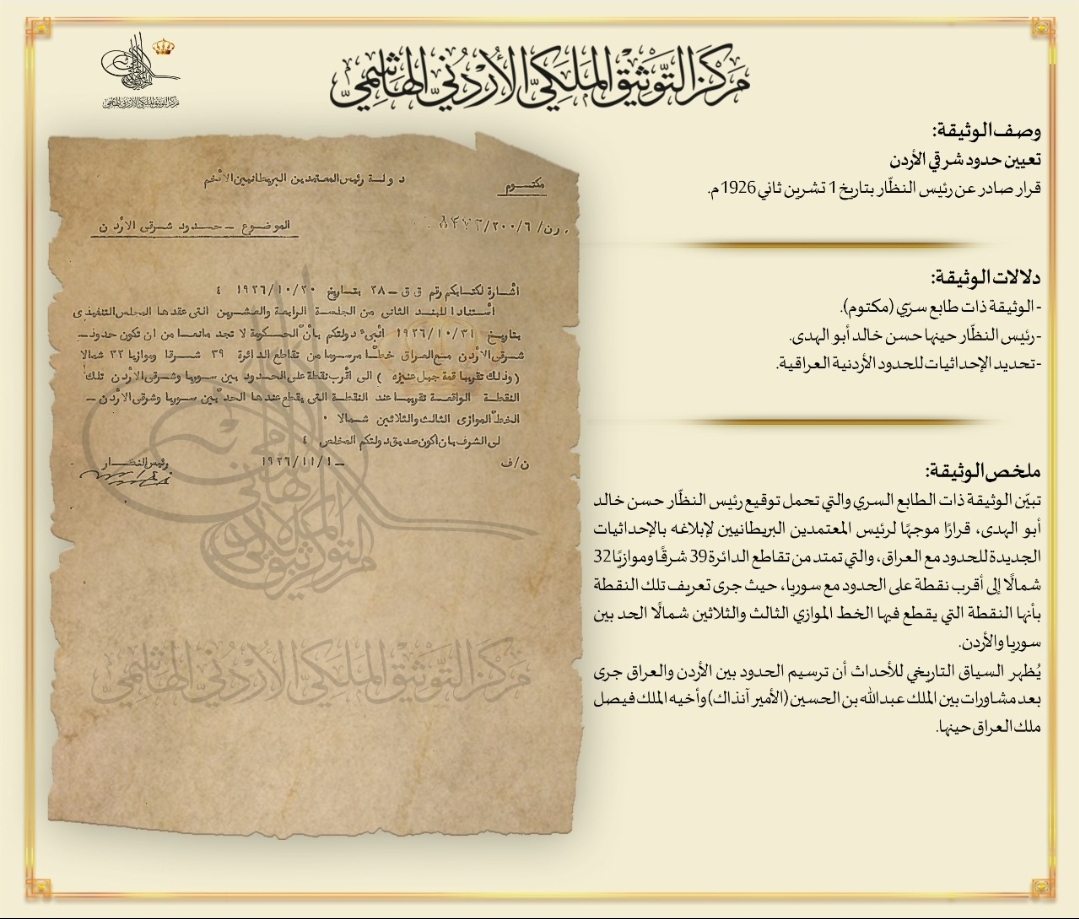 مركز التوثيق الملكي الأردني الهاشمي
مركز التوثيق الملكي الأردني الهاشمي
وصف الوثيقة:
تعيين حدود شرقي الأردن
قرار صادر عن رئيس النظّار بتاريخ 1 تشرين ثاني 1926 م.
دلالات الوثيقة:
- الوثيقة ذات طابع سري (مكتوم).
- رئيس النظّار حينها حسن خالد أبو الهدى.
- تحديد الإحداثيات للحدود الأردنية العراقية.
ملخص الوثيقة:
تبيّن الوثيقة ذات الطابع السري والتي تحمل توقيع رئيس النظّار حسن خالد
أبو الهدى، قرارًا موجهًا لرئيس المعتمدين البريطانيين لإبلاغه بالإحداثيات
الجديدة للحدود مع العراق، والتي تمتد من تقاطع الدائرة 39 شرقًا وموازيًا 32
شمالًا إلى أقرب نقطة على الحدود مع سوريا، حيث جرى تعريف تلك النقطة
بأنها النقطة التي يقطع فيها الخط الموازي الثالث والثلاثين شمالًا الحد بين
سوريا والأردن.
يُظهر السياق التاريخي للأحداث أن ترسيم الحدود بين الأردن والعراق جرى
بعد مشاورات بين الملك عبدالله بن الحسين (الأمير آنذاك) وأخيه الملك فيصل
ملك العراق حينها.
دولة رئيس المعتمدين البريطانيين الأفخم
مكتوم
الموضوع – حدود شرقي الأردن
اشارة لكتابكم رقم ق ق – ٢٨ بتاريخ ١٩٢٦/١٠/٢٠ ٤
استنادا للبند الثاني من الجلسة الرابعة والعشرين التي عقدها المجلس التنفيذي
بتاريخ ١٩٢٦/١٠/٣١ أنبىء دولتكم بأنّ الحكومة لا تجد مانعا من ان تكون حدود –
شرقي الأردن مع العراق خطّا مرسوما من تقاطع الدائرة ٣٩ شرقا وموازيا ٣٢ شمالا
(وذلك تقريبا قمة جبل عنيزه) الى أقرب نقطة على الحدود بين سوريا وشرقي الأردن تلك
النقطة الواقعة تقريبا عند النقطة التي يقطع عندها الحدّ بين سوريا وشرقي الأردن –
الخطّ الموازي الثالث والثلاثين شمالا ٠
لي الشرف بان اكون صديق دولتكم المخلص ٤
ن/ف
١٩٢٦/١١/١ –
رئيس النظار
مركز التوثيق الملكي الأردني الهاشمي